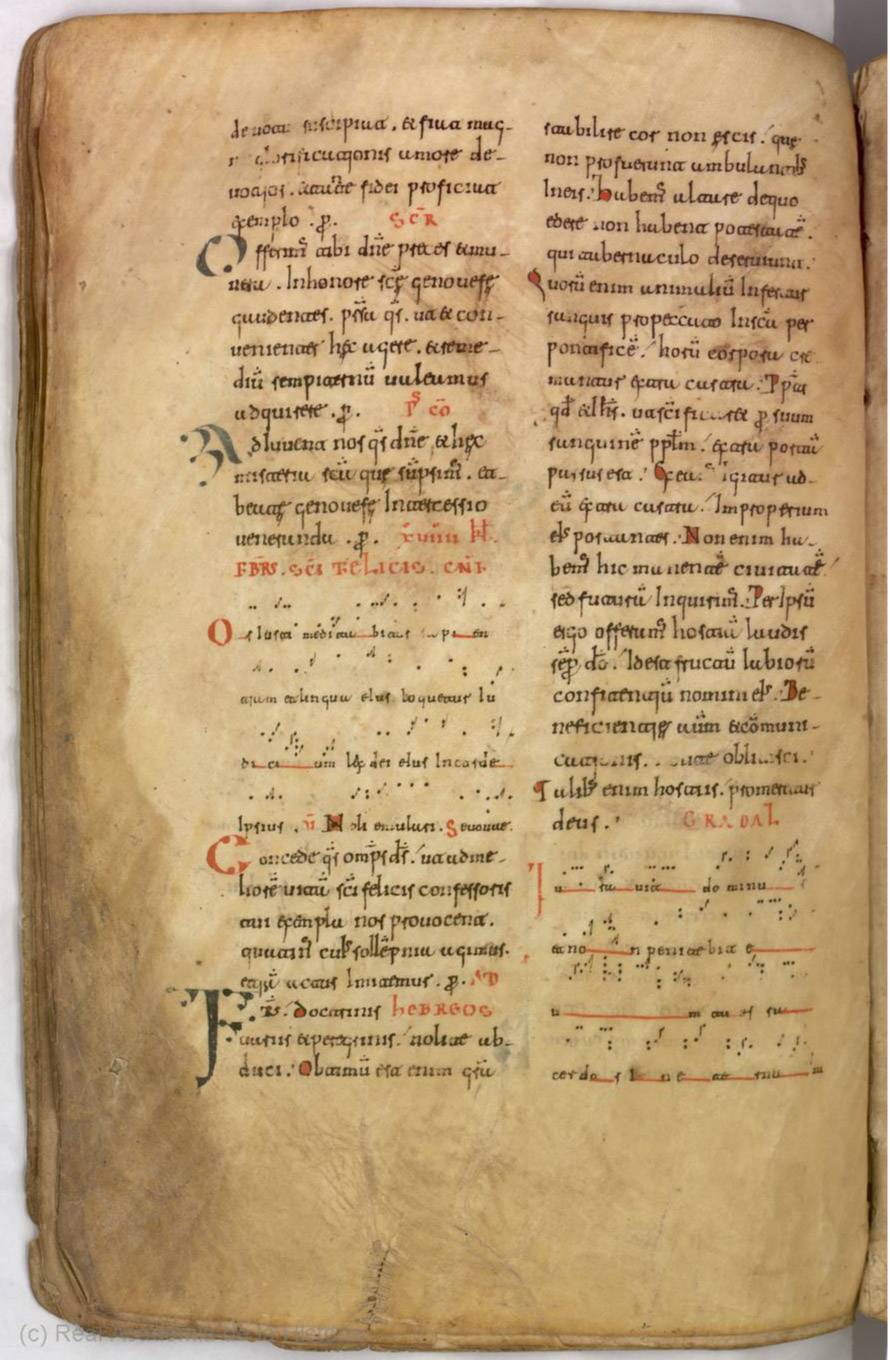 tias. et sua mag-
glorificationis amore de-
uotos. tante fidei proficiat
exemplo .p. SCR
Offerim tibi dne preces et mu-
nera . In honore sce genouefe
gaudentes. psta qs. ut et con-
uenienter hec agere. et reme-
diu sempiternu ualeamus
adquirere .p. PS CO
Adiuuent nos qs dne et hec
misteria scu que supsim. et
beate genouefe Intercessio
ueneranda .p. XVIIII kl
FBRS. SCI FELICIS. CNF.
Os Iusti meditabitur sapien
tiam et lingua eius loquetur iu
dicium lex dei eius In corde
Ipsius . V Noli emulari. Seuouae.
Concede qs omps ds. ut ad me-
liore uita sci felicis confessoris
tui exenpla nos prouocent.
quatin cuis sollepnia agimus.
etia actus Imitemur .p. AD
Frs. Doctrinis HEBREOS
uariis et peregrinis. nolite ab-
duci. Obtimu est enim gra
stabilire cor non escis. que
non profuerunt ambulantibs
In eis. Habem altare de quo
edere non habent potestate.
qui tabernaculo deseruiunt.
Quoru enim animaliu Infertur
sanguis pro peccato In sca per
pontifice. horu corpora cre
mantur extra castra. Ppter
qd et Ihs. ut scificaret p suum
sanguine pplm. extra porta
passus est. Exeamus igitur ad
eu extra castra. Improperium
eis portantes. Non enim ha-
bem hic manente ciuitate.
sed futura Inquirim. Per Ipsu
ergo offerim hostia laudis
semp do. Id est fructu labioru
confitentiu nomini eis. Be-
neficientie aute et comuni-
cationis. nolite obliuisci.
Talibs enim hostiis. promeretur
deus. GRADAL
Iurauit dominus
et non penitebit e
um tu es sa
cerdos In eternum